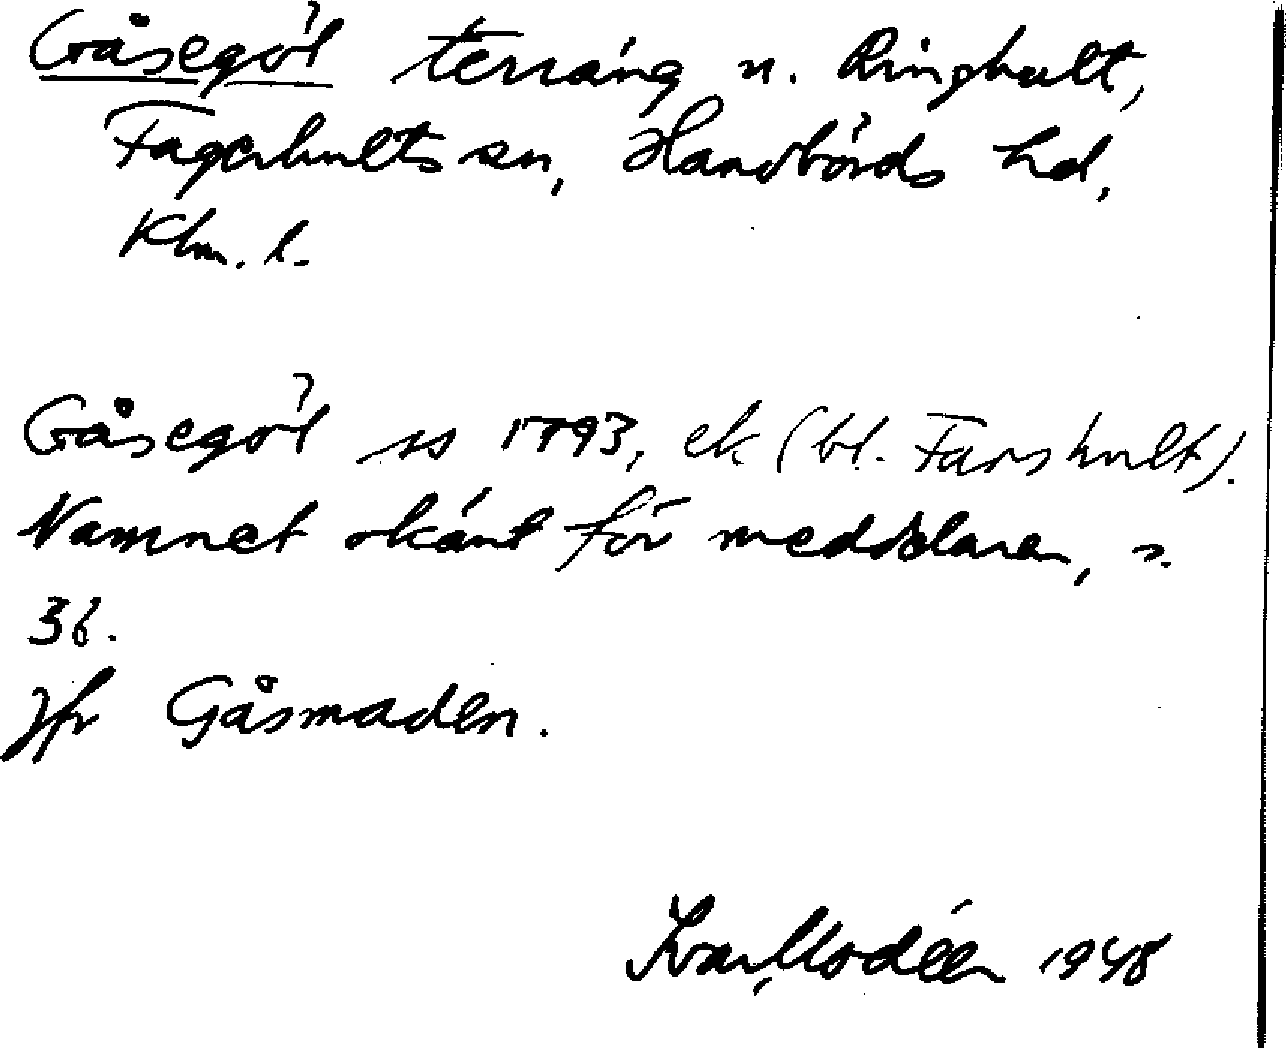 Gåsegöl terräng n. Ringhult,
Fagerhults sn, Handbörds hd,
Klm. l.
Gåsegöl ss 1793, ek (bl. Farshult).
Namnet okänt för meddelaren, s.
36.
Jfr Gåsmaden.
Ivar Modéer 1948